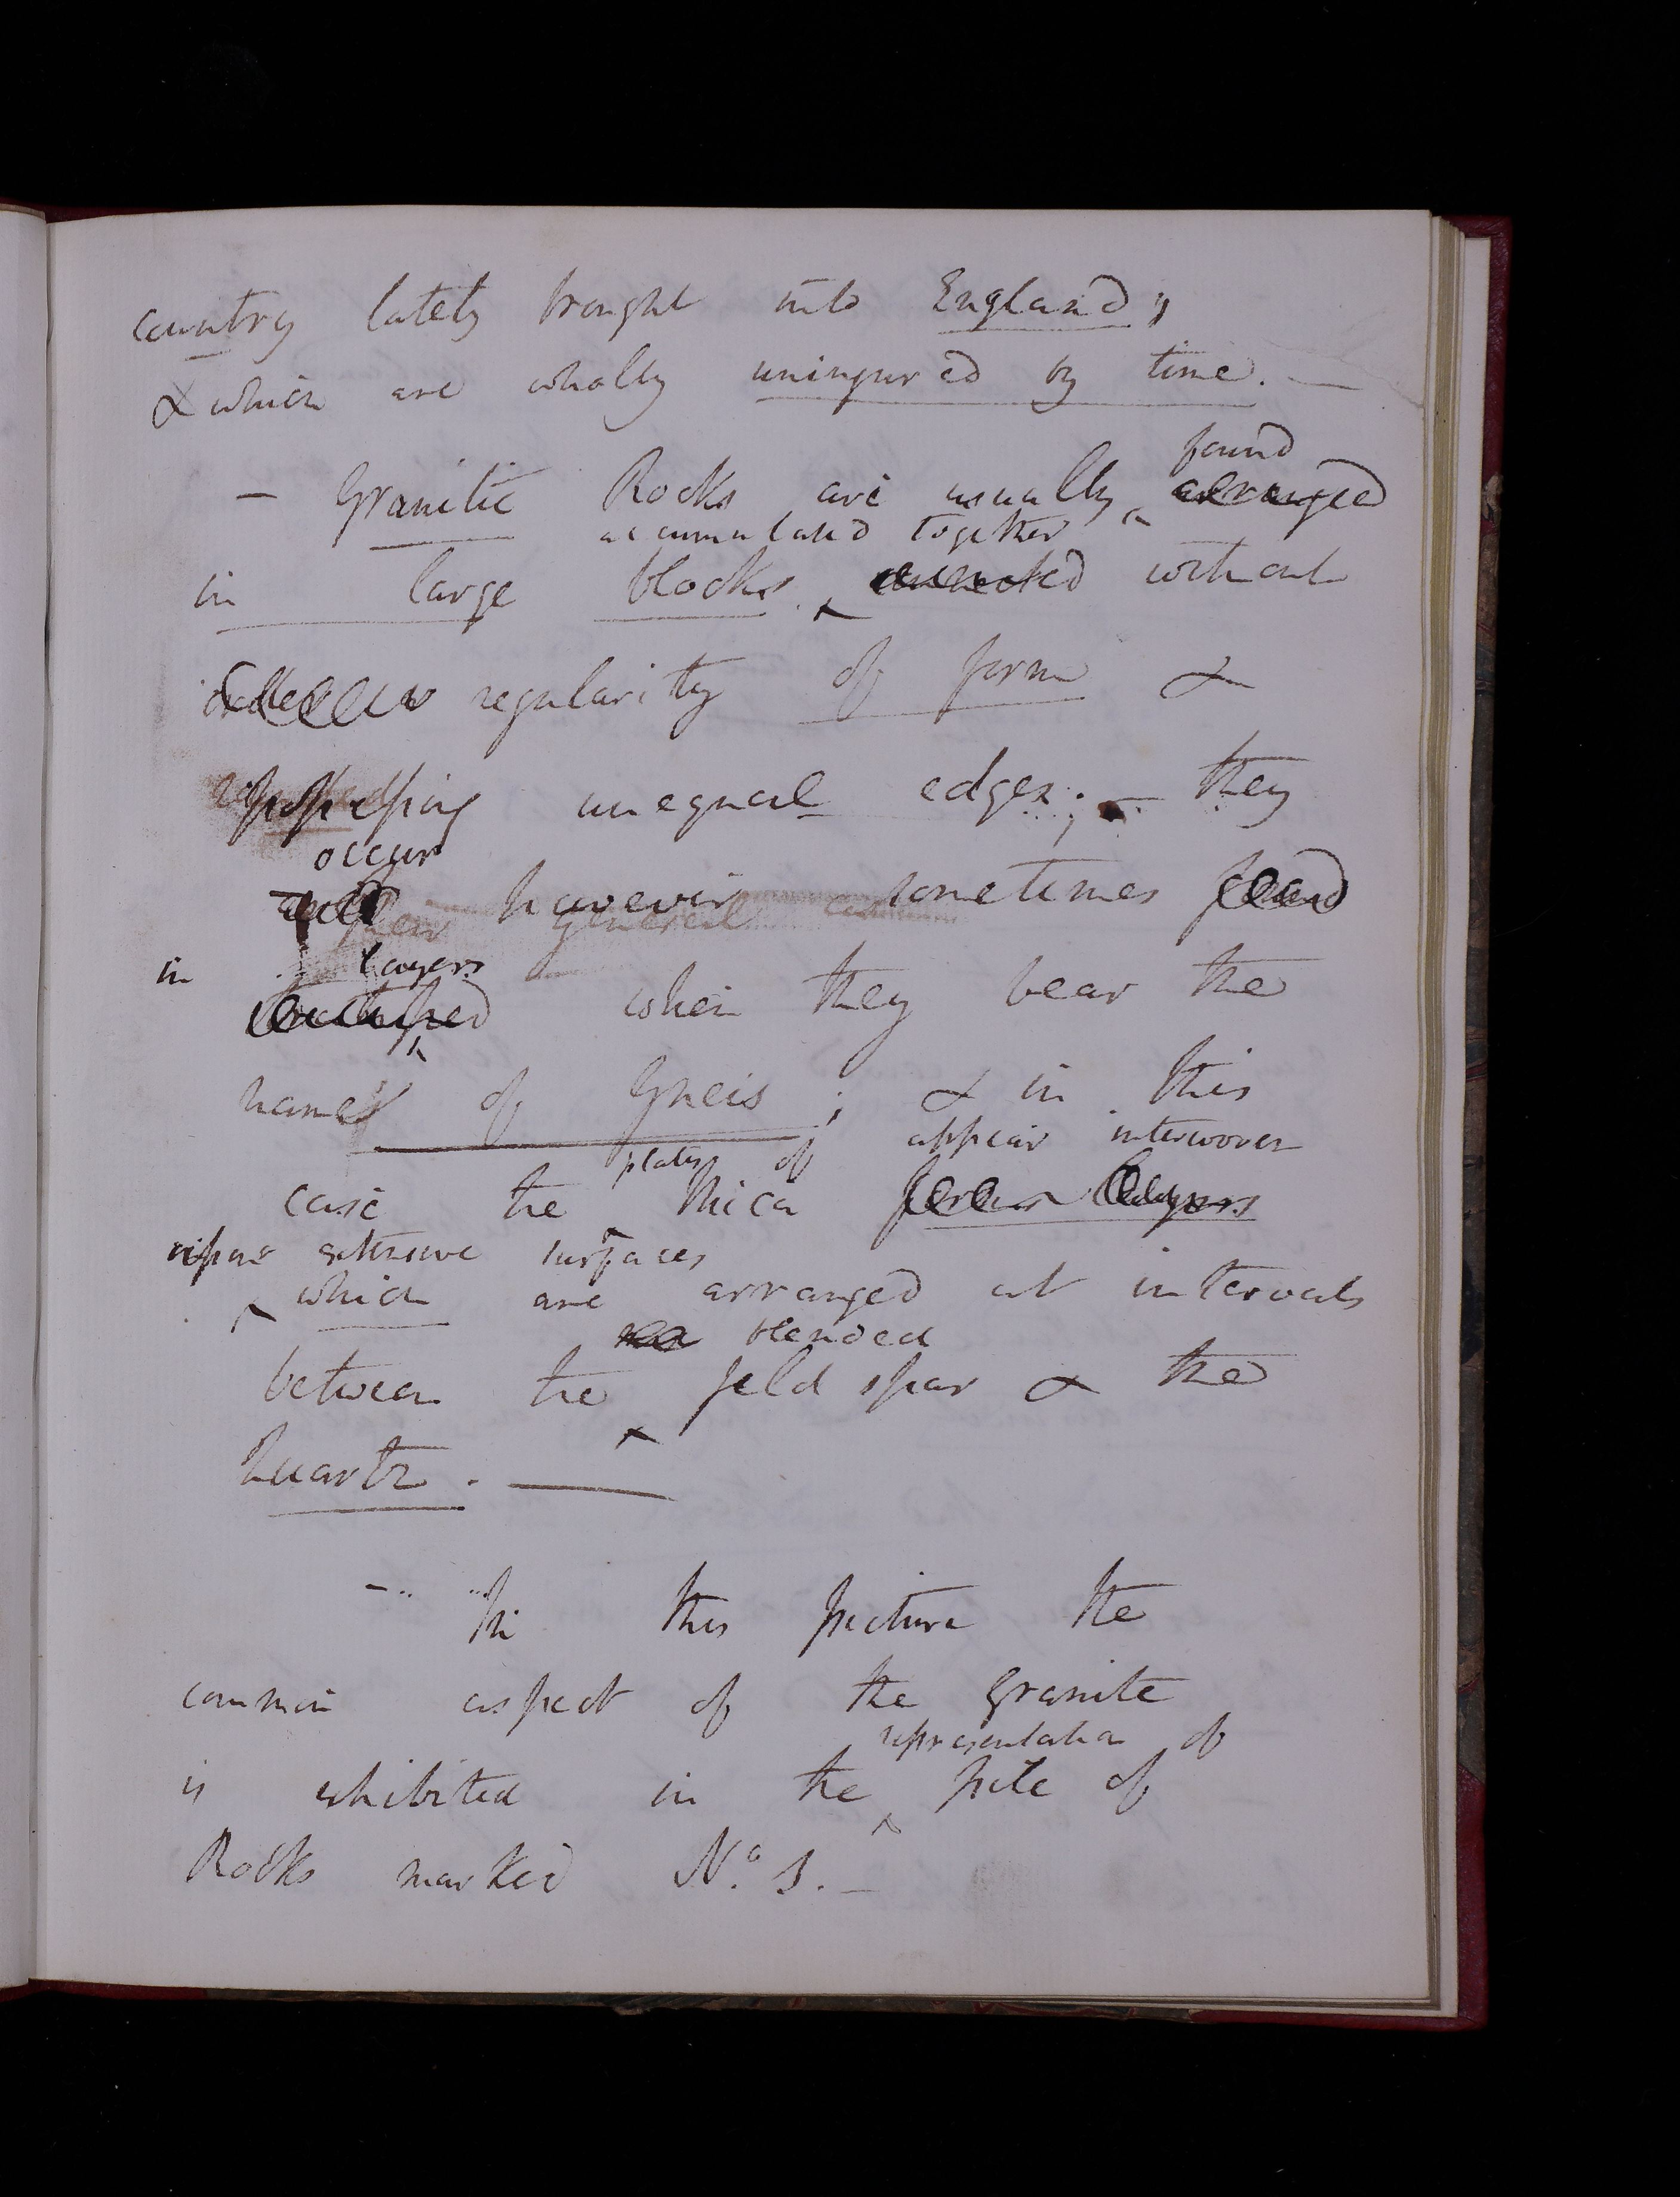 country lately brought into England;
& which are wholly uninjured by time. —
found
— Granitic Rocks are usually ^ arranged
accumulated together
in large blocks. ^ without
regularity of form &
possessing unequal edges; — they
occur
however sometimes found
in layers
when they bear the
name of Gneis; & in this
plates of appear interwoven
case the ^ Mica form layers
upon extensive surfaces
^ which are arranged at intervals
blended
between the ^ feldspar & the
Quartz. —
— In this picture the
common aspect of the granite
representation of
is exhibited in the ^ pile of
Rocks marked No. 1. —